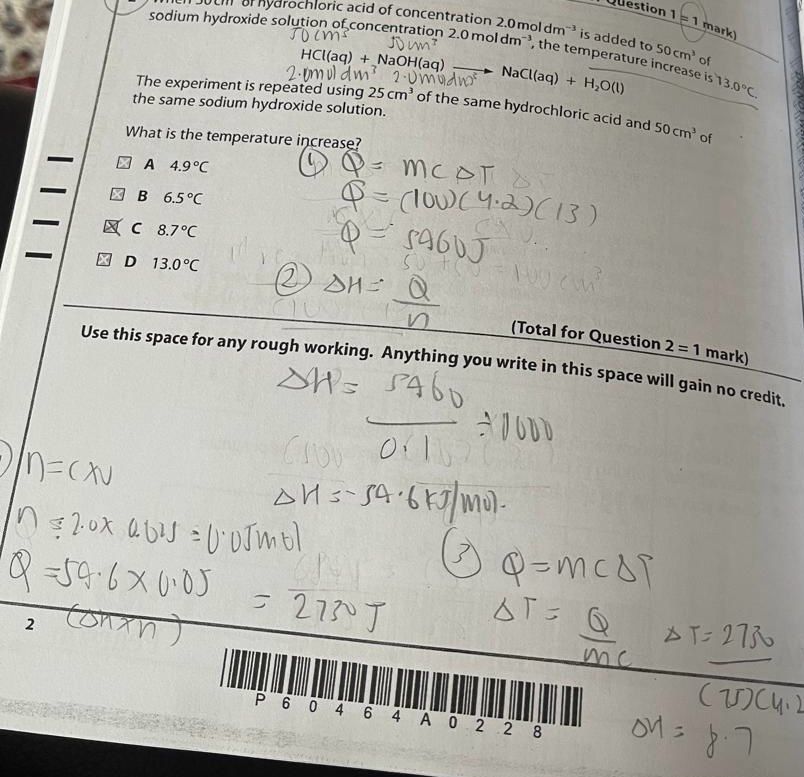 Question 1 = 1 mark)
of hydrochloric acid of concentration 2.0 mol dm⁻³ is added to 50 cm³ of
sodium hydroxide solution of concentration 2.0 mol dm⁻³, the temperature increase is 13.0°C.
50cm³ 50cm³
HCl(aq) + NaOH(aq) ⟶ NaCl(aq) + H₂O(l)
2.0moldm³ 2.0moldm³
The experiment is repeated using 25 cm³ of the same hydrochloric acid and 50 cm³ of
the same sodium hydroxide solution.
What is the temperature increase?
A 4.9°C
B 6.5°C
C 8.7°C
D 13.0°C
① Q = mcΔT
Q = (100)(4.2)(13)
Q = 5460J
50 + 50 = 100cm³
② ΔH = Q/n
(Total for Question 2 = 1 mark)
Use this space for any rough working. Anything you write in this space will gain no credit.
ΔH = 5460/0.1 ÷1000
ΔH = -54.6kJ/mol.
n=cxv
n = 2.0x 0.025 = 0.05mol
Q = 54.6 x 0.05 = 2730 J
(ΔHxn)
③ Q = mcΔT
ΔT = Q/mc
ΔT = 2730/(75)(4.2
ΔH = 8.7
2
P60464A0228